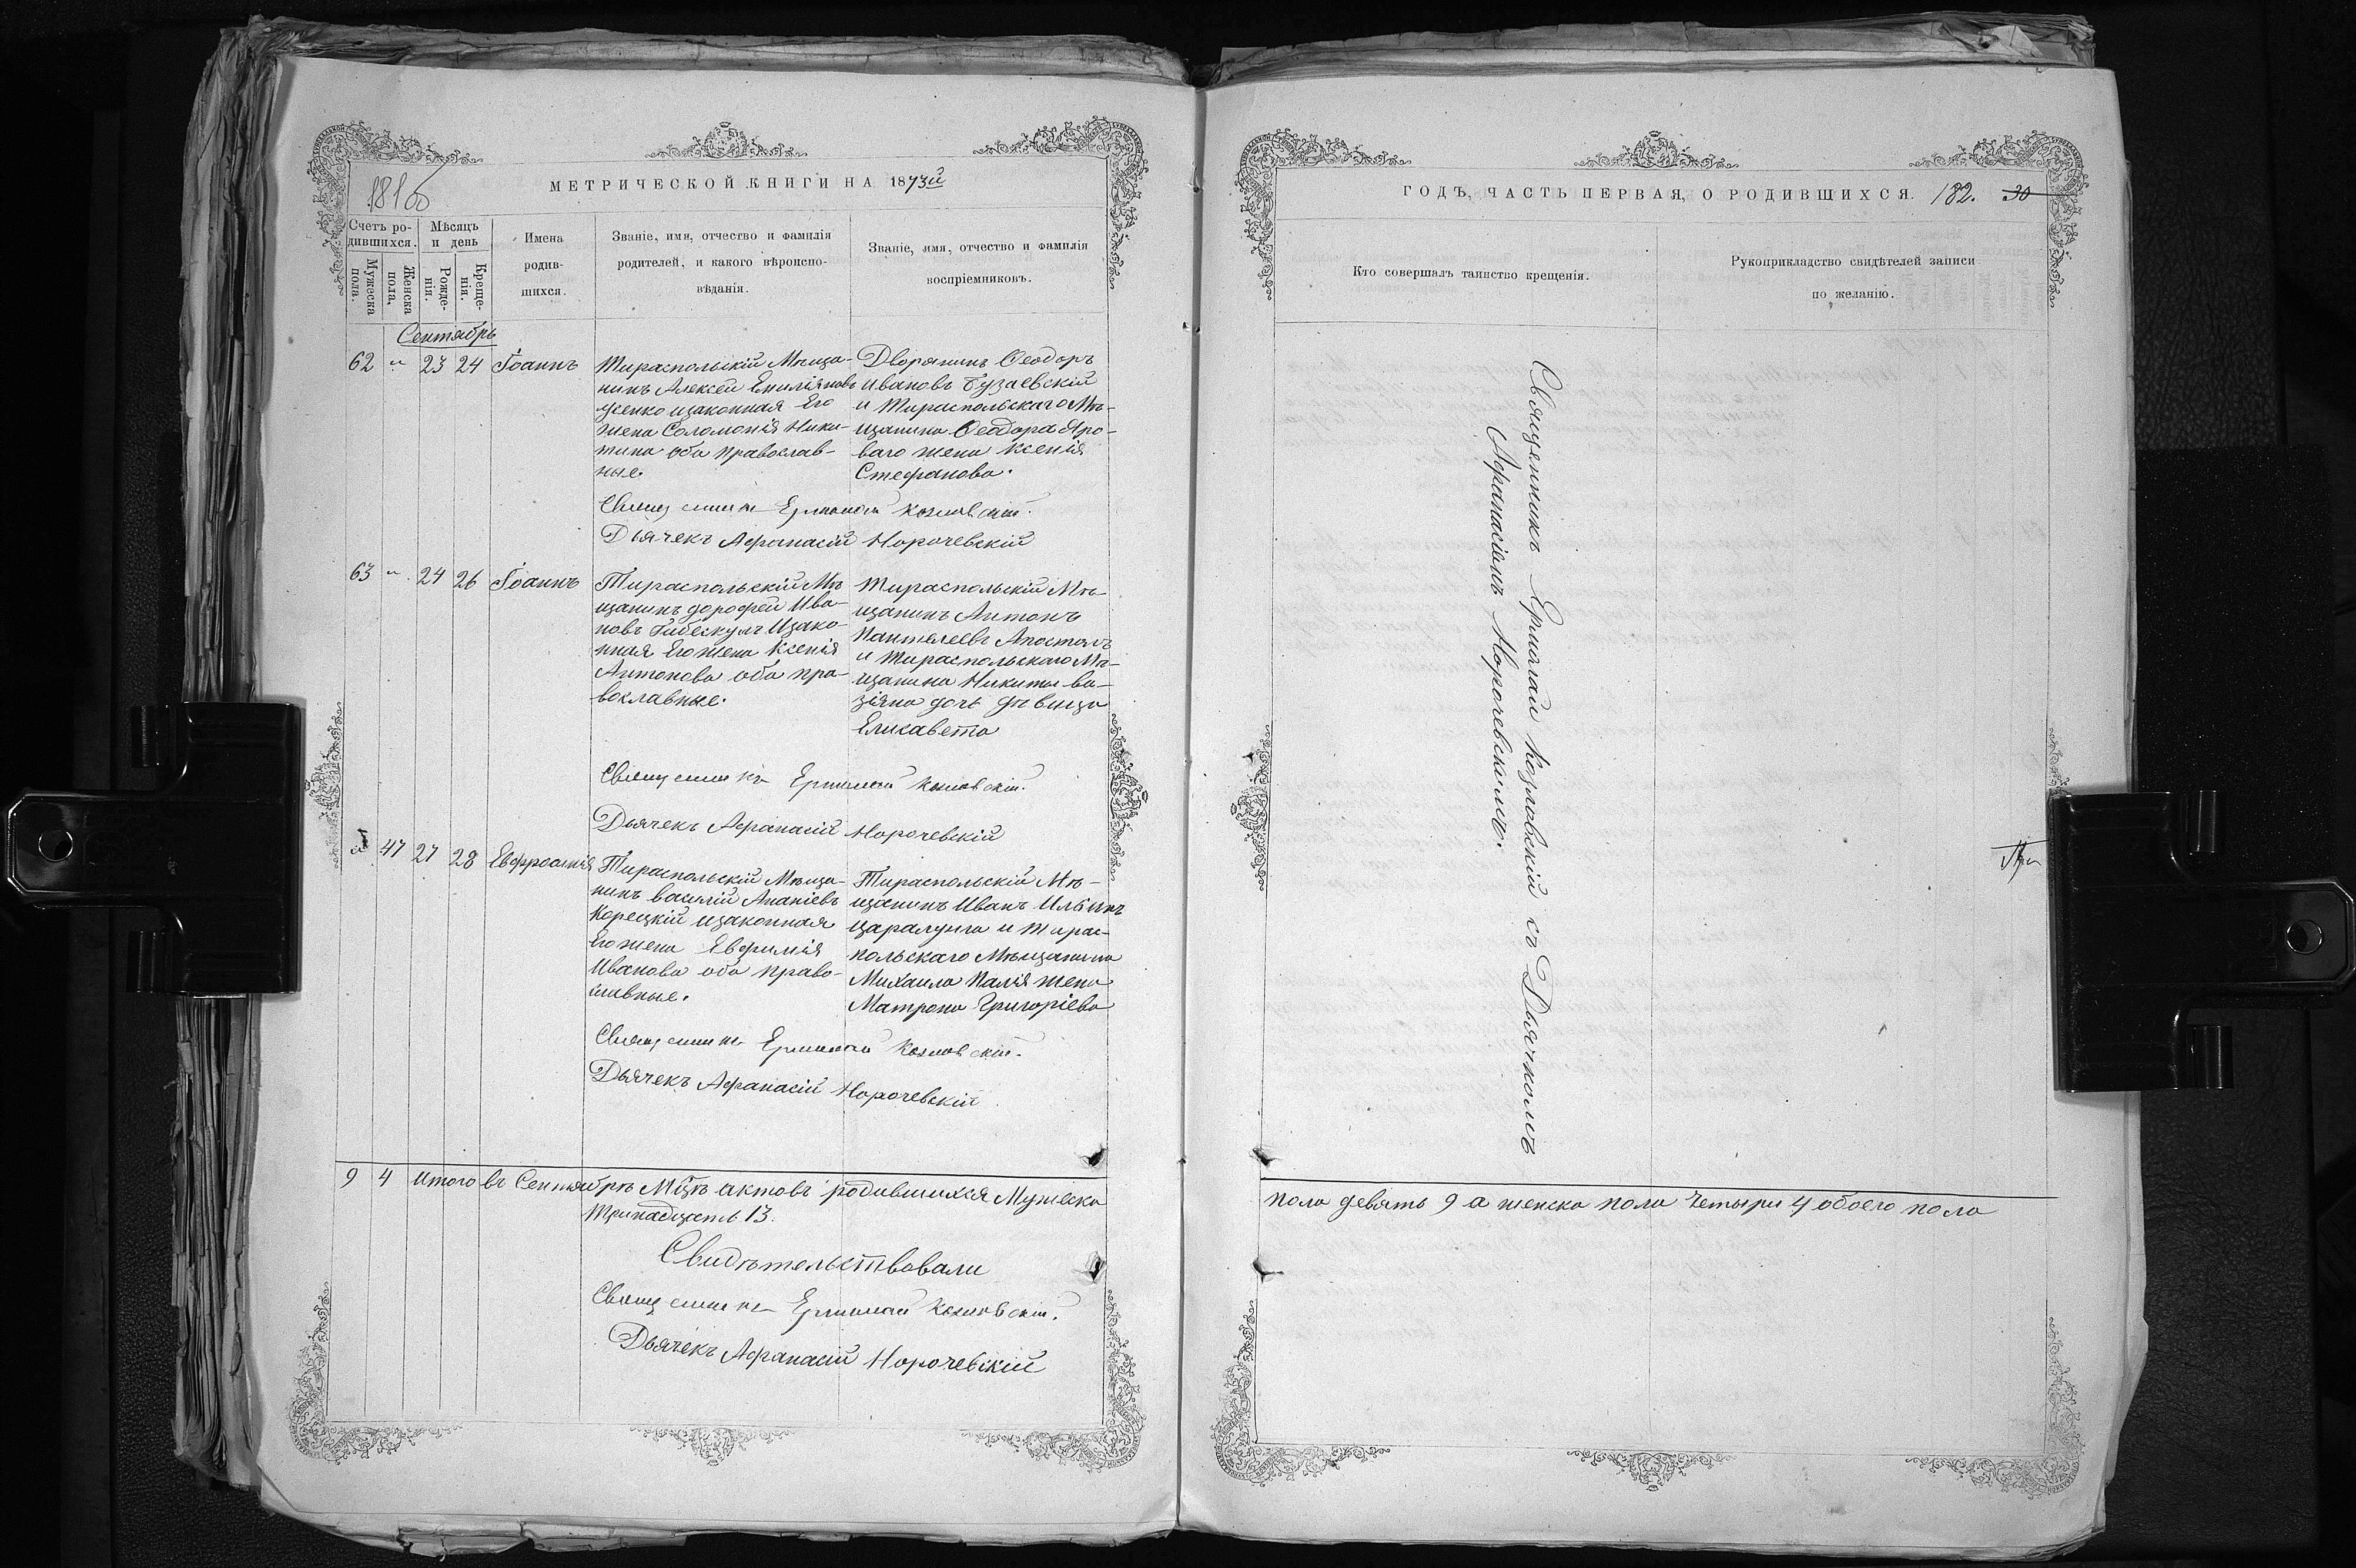 181об
МЕТРИЧЕСКОЙ КНИГИ НА 1873й
Счетъ ро-
дившихся.
Мужеска
пола.
Женска
пола.
Мѣсяцъ
и день
Рожде-
нія.
Креще-
нія.
Имена
родив-
шихся.
Званіе, имя, отчество и фамилія
родителей, и какого вѣроиспо-
вѣданія.
Званіе, имя, отчество и фамилія
воспріемниковъ.
Сентябрь
62 " 23 24 Іоаннъ
Тираспольскій Мѣща-
нинъ Алексей Емиліяновъ
изаконная Его
жена Соломонія Ники-
тина оба православ-
ные.
Дворянинъ Ѳеодоръ
Ивановъ Бузаевскій
и Тираспольскаго Мѣ-
щанина Ѳеодора Яро-
ваго жена Ксенія
Стефанова.
Священникъ Ермолай Козловскій.
Дьячекъ Афанасій Норочевскій
63 " 24 26 Іоаннъ
Тираспольскій Мѣ
щанинъ Дорофей Ива-
новъ Гибескулъ Изако-
нная Его жена Ксенія
Антонова оба пра-
вославные.
Тираспольскій Мѣ-
щанинъ Антонъ
Пантелеевъ Апостолъ
и Тираспольскаго Мѣ-
щанина Никиты Ва-
зіяна дочь дѣвица
Елисавета
Священникъ Ермолай Козловскій.
Дьячекъ Афанасій Норочевскій
" 47 27 28 Евфросинія
Тираспольскій Мѣща-
нинъ Василій Ананіевъ
Корецкій изаконная
Его жена Евфимія
Иванова оба право-
славные.
Тираспольскій Мѣ-
щанинъ Иванъ Ильинъ
Царалунга и Тирас-
польскаго Мѣщанина
Михаила Палія жена
Матрона Григоріева
Священникъ Ермолай Козловскій.
Дьячекъ Афанасій Норочевскій
9 4 Итого въ Сентябрѣ Мцѣ актовъ родившихся Мужеска
тринадцать 13.
Свидѣтельствовали
Священникъ Ермолай Козловскій.
Дьячекъ Афанасій Норочевскій
ГОДЪ, ЧАСТЬ ПЕРВАЯ, О РОДИВШИХСЯ. 182. 30
Кто совершалъ таинство крещенія.
Рукоприкладство свидѣтелей записи
по желанію.
Священникъ Ермолай Козловскій съ Дьячкомъ
Афанасіемъ Норочевскимъ.
пола девять 9 а женска пола четыри 4 обоего пола